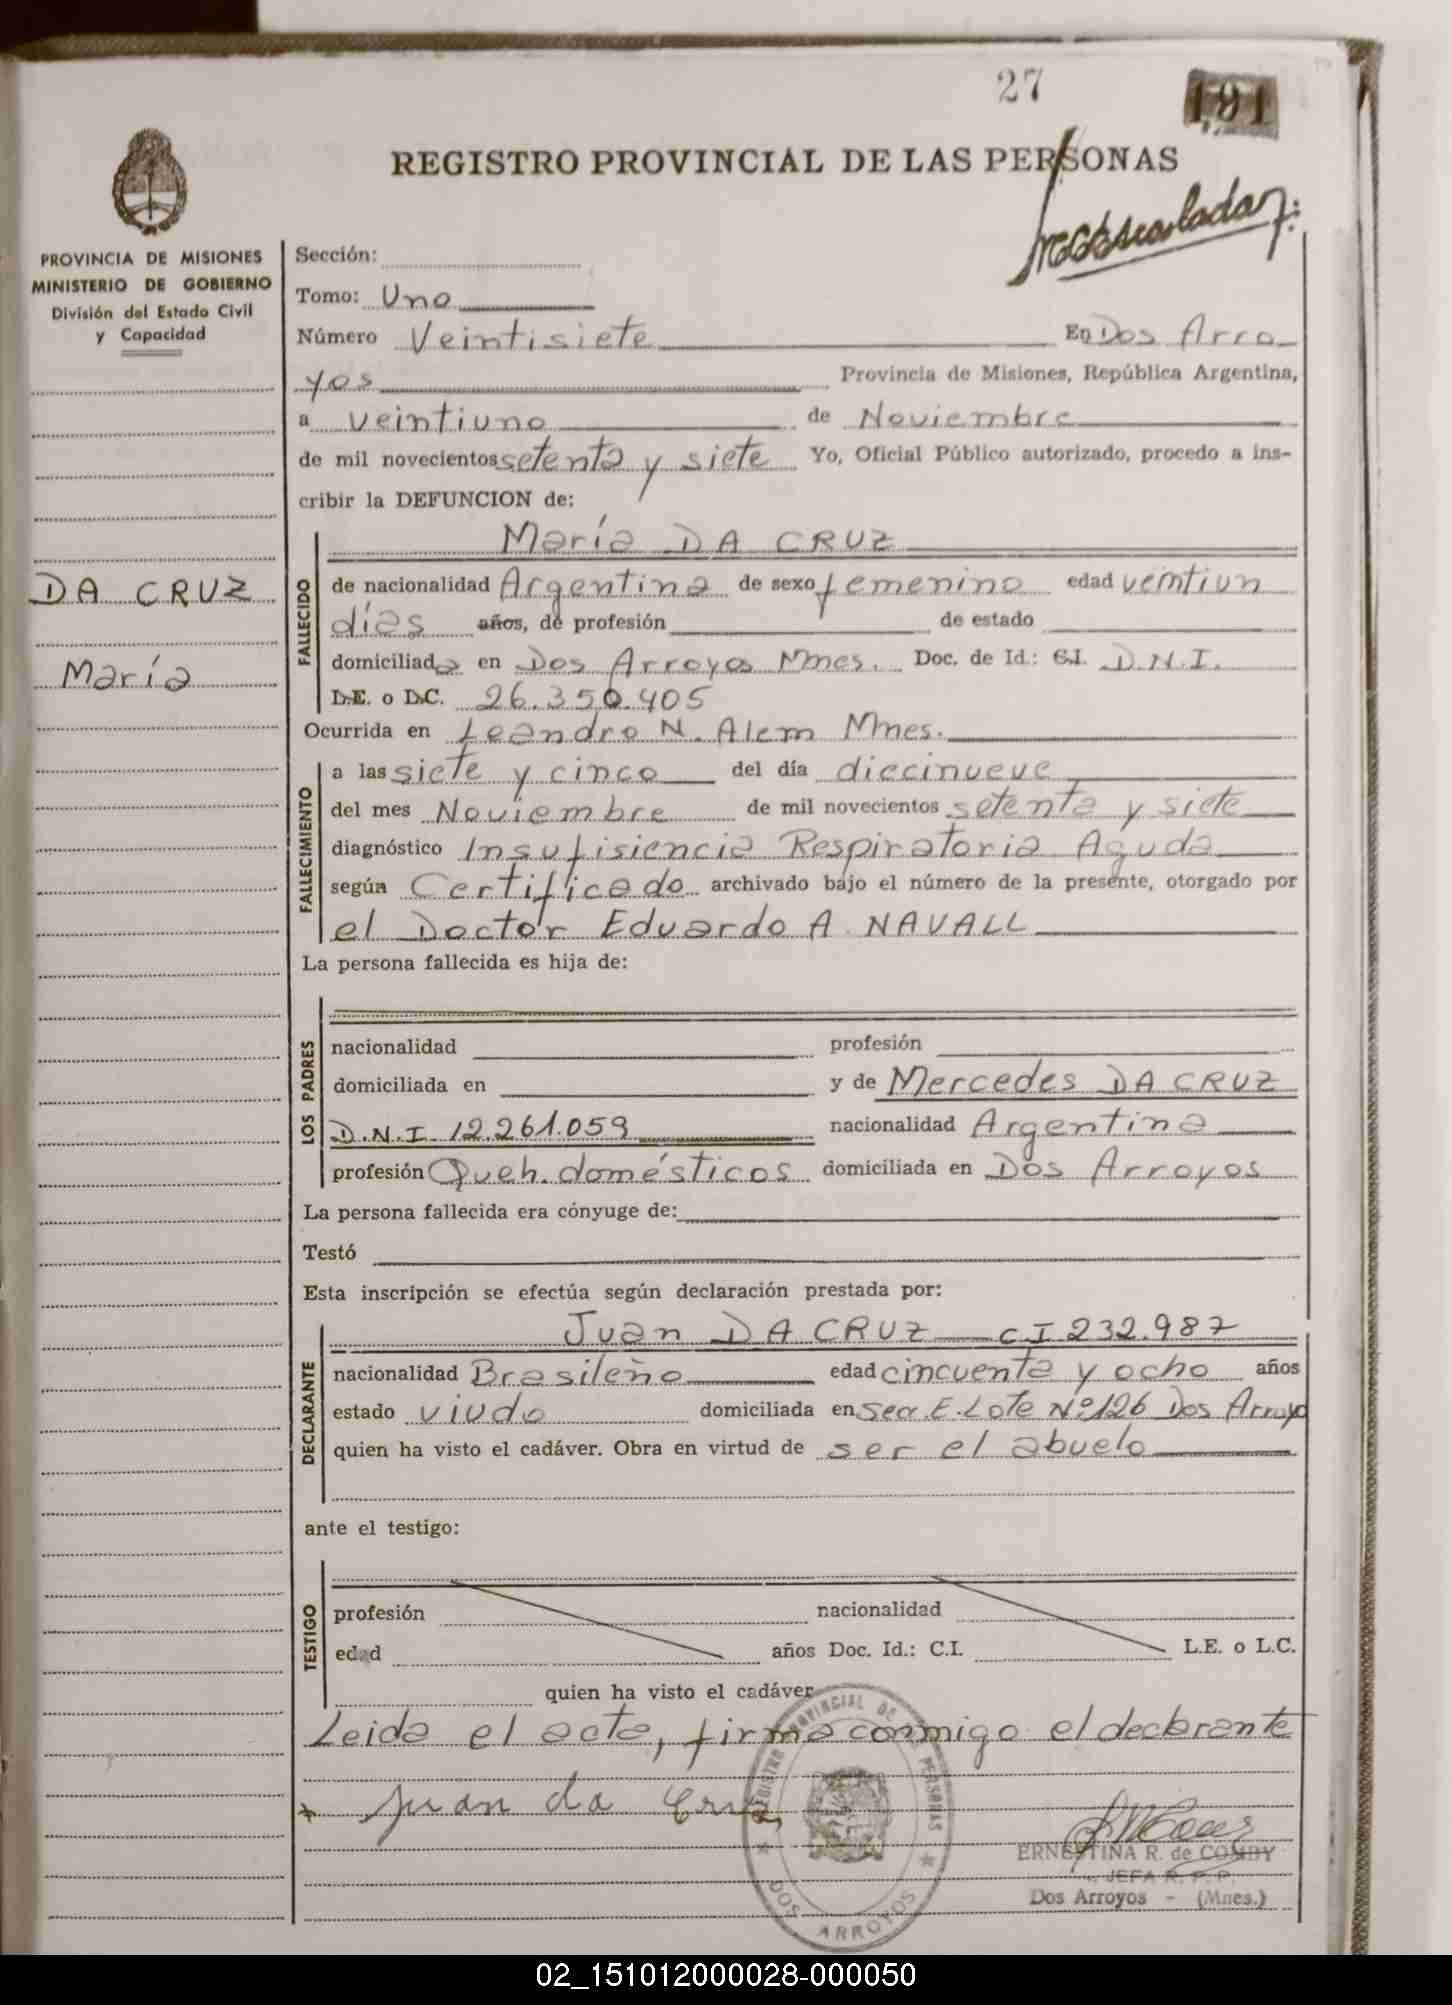 27
191
REGISTRO PROVINCIAL DE LAS PERSONAS
PROVINCIA DE MISIONES
MINISTERIO DE GOBIERNO
División del Estado Civil
y Capacidad
Sección:
Tomo: Uno
Número Veintisiete En Dos Arro
yos Provincia de Misiones, República Argentina,
a veintiuno de Noviembre
de mil novecientos setenta y siete Yo, Oficial Público autorizado, procedo a ins-
cribir la DEFUNCION de:
DA CRUZ
María
FALLECIDO
María DA CRUZ
de nacionalidad Argentina de sexo femenino edad veintiun
días años, de profesión de estado
domiciliada en Dos Arroyos Mnes. Doc. de Id.: C.I. D.N.I.
L.E. o L.C. 26.350.405
Ocurrida en Leandro N. Alem Mnes.
FALLECIMIENTO
a las siete y cinco del día diecinueve
del mes Noviembre de mil novecientos setenta y siete
diagnóstico Insufisiencia Respiratoria Aguda
según Certificado archivado bajo el número de la presente, otorgado por
el Doctor Eduardo A. NAVALL
La persona fallecida es hija de:
LOS PADRES
nacionalidad profesión
domiciliada en y de Mercedes DA CRUZ
D.N.I. 12.261.059 nacionalidad Argentina
profesión Queh. domésticos domiciliada en Dos Arroyos
La persona fallecida era cónyuge de:
Testó
Esta inscripción se efectúa según declaración prestada por:
DECLARANTE
Juan DA CRUZ CI 232.987
nacionalidad Brasileño edad cincuenta y ocho años
estado viudo domiciliada en Secr. E. Lote Nº 126 Dos Arroyo
quien ha visto el cadáver. Obra en virtud de ser el abuelo
ante el testigo:
TESTIGO
profesión nacionalidad
edad años Doc. Id.: C.I. L.E. o L.C.
quien ha visto el cadáver
Leida el acta, firma conmigo el declarante
Juan da Cruz
REGISTRO PROVINCIAL DE LAS PERSONAS
DOS ARROYOS
ERNESTINA R. de COMBY
JEFA R. P. P.
Dos Arroyos - (Mnes.)
02_151012000028-000050